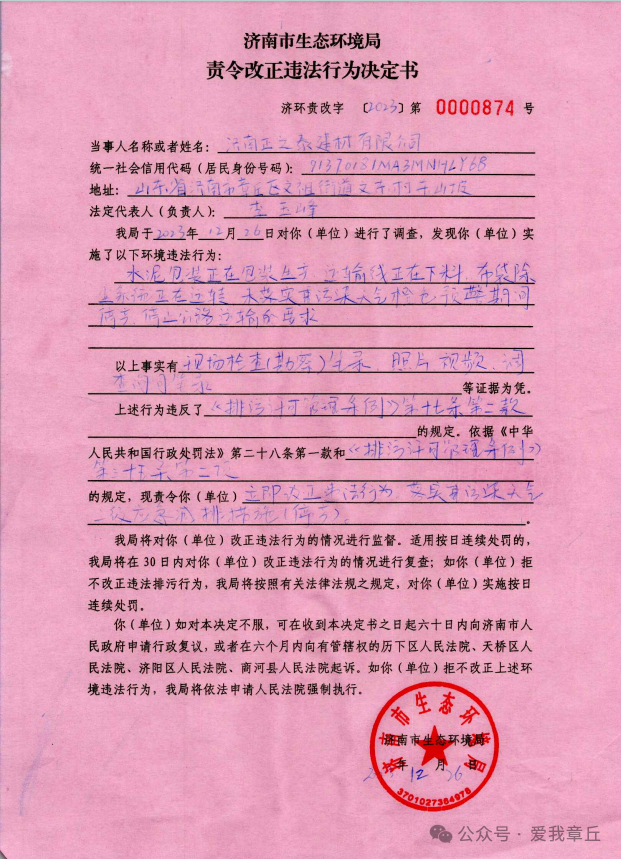 济南市生态环境局
责令改正违法行为决定书
济环责改字 〔2023〕第 0000874 号
当事人名称或者姓名：济南正之泰建材有限公司
统一社会信用代码（居民身份号码）：91370181MA3MNHLY6B
地址：山东省济南市章丘区文祖街道文东村东山坡
法定代表人（负责人）：李玉峰
我局于2023年12月26日对你（单位）进行了调查，发现你（单位）实
施了以下环境违法行为：
水泥包装正在包装生产 运输线正在下料，布袋除
正在运转 未落实重污染天气橙色预警期间
停产，停止公路运输的要求
以上事实有现场检查(勘察)笔录 照片 视频、调
查询问笔录等证据为凭。
上述行为违反了《排污许可管理条例》第十七条第二款
的规定。依据《中华
人民共和国行政处罚法》第二十八条第一款和《排污许可管理条例》
第三十五条第二项
的规定，现责令你（单位）立即改正违法行为 落实重污染天气
应急减排措施(停产)。
我局将对你（单位）改正违法行为的情况进行监督。适用按日连续处罚的，
我局将在30日内对你（单位）改正违法行为的情况进行复查；如你（单位）拒
不改正违法排污行为，我局将按照有关法律法规之规定，对你（单位）实施按日
连续处罚。
你（单位）如对本决定不服，可在收到本决定书之日起六十日内向济南市人
民政府申请行政复议，或者在六个月内向有管辖权的历下区人民法院、天桥区人
民法院、济阳区人民法院、商河县人民法院起诉。如你（单位）拒不改正上述环
境违法行为，我局将依法申请人民法院强制执行。
济南市生态环境局
济南市生态环境局
年12月26日
3701027364978
公众号·爱我章丘